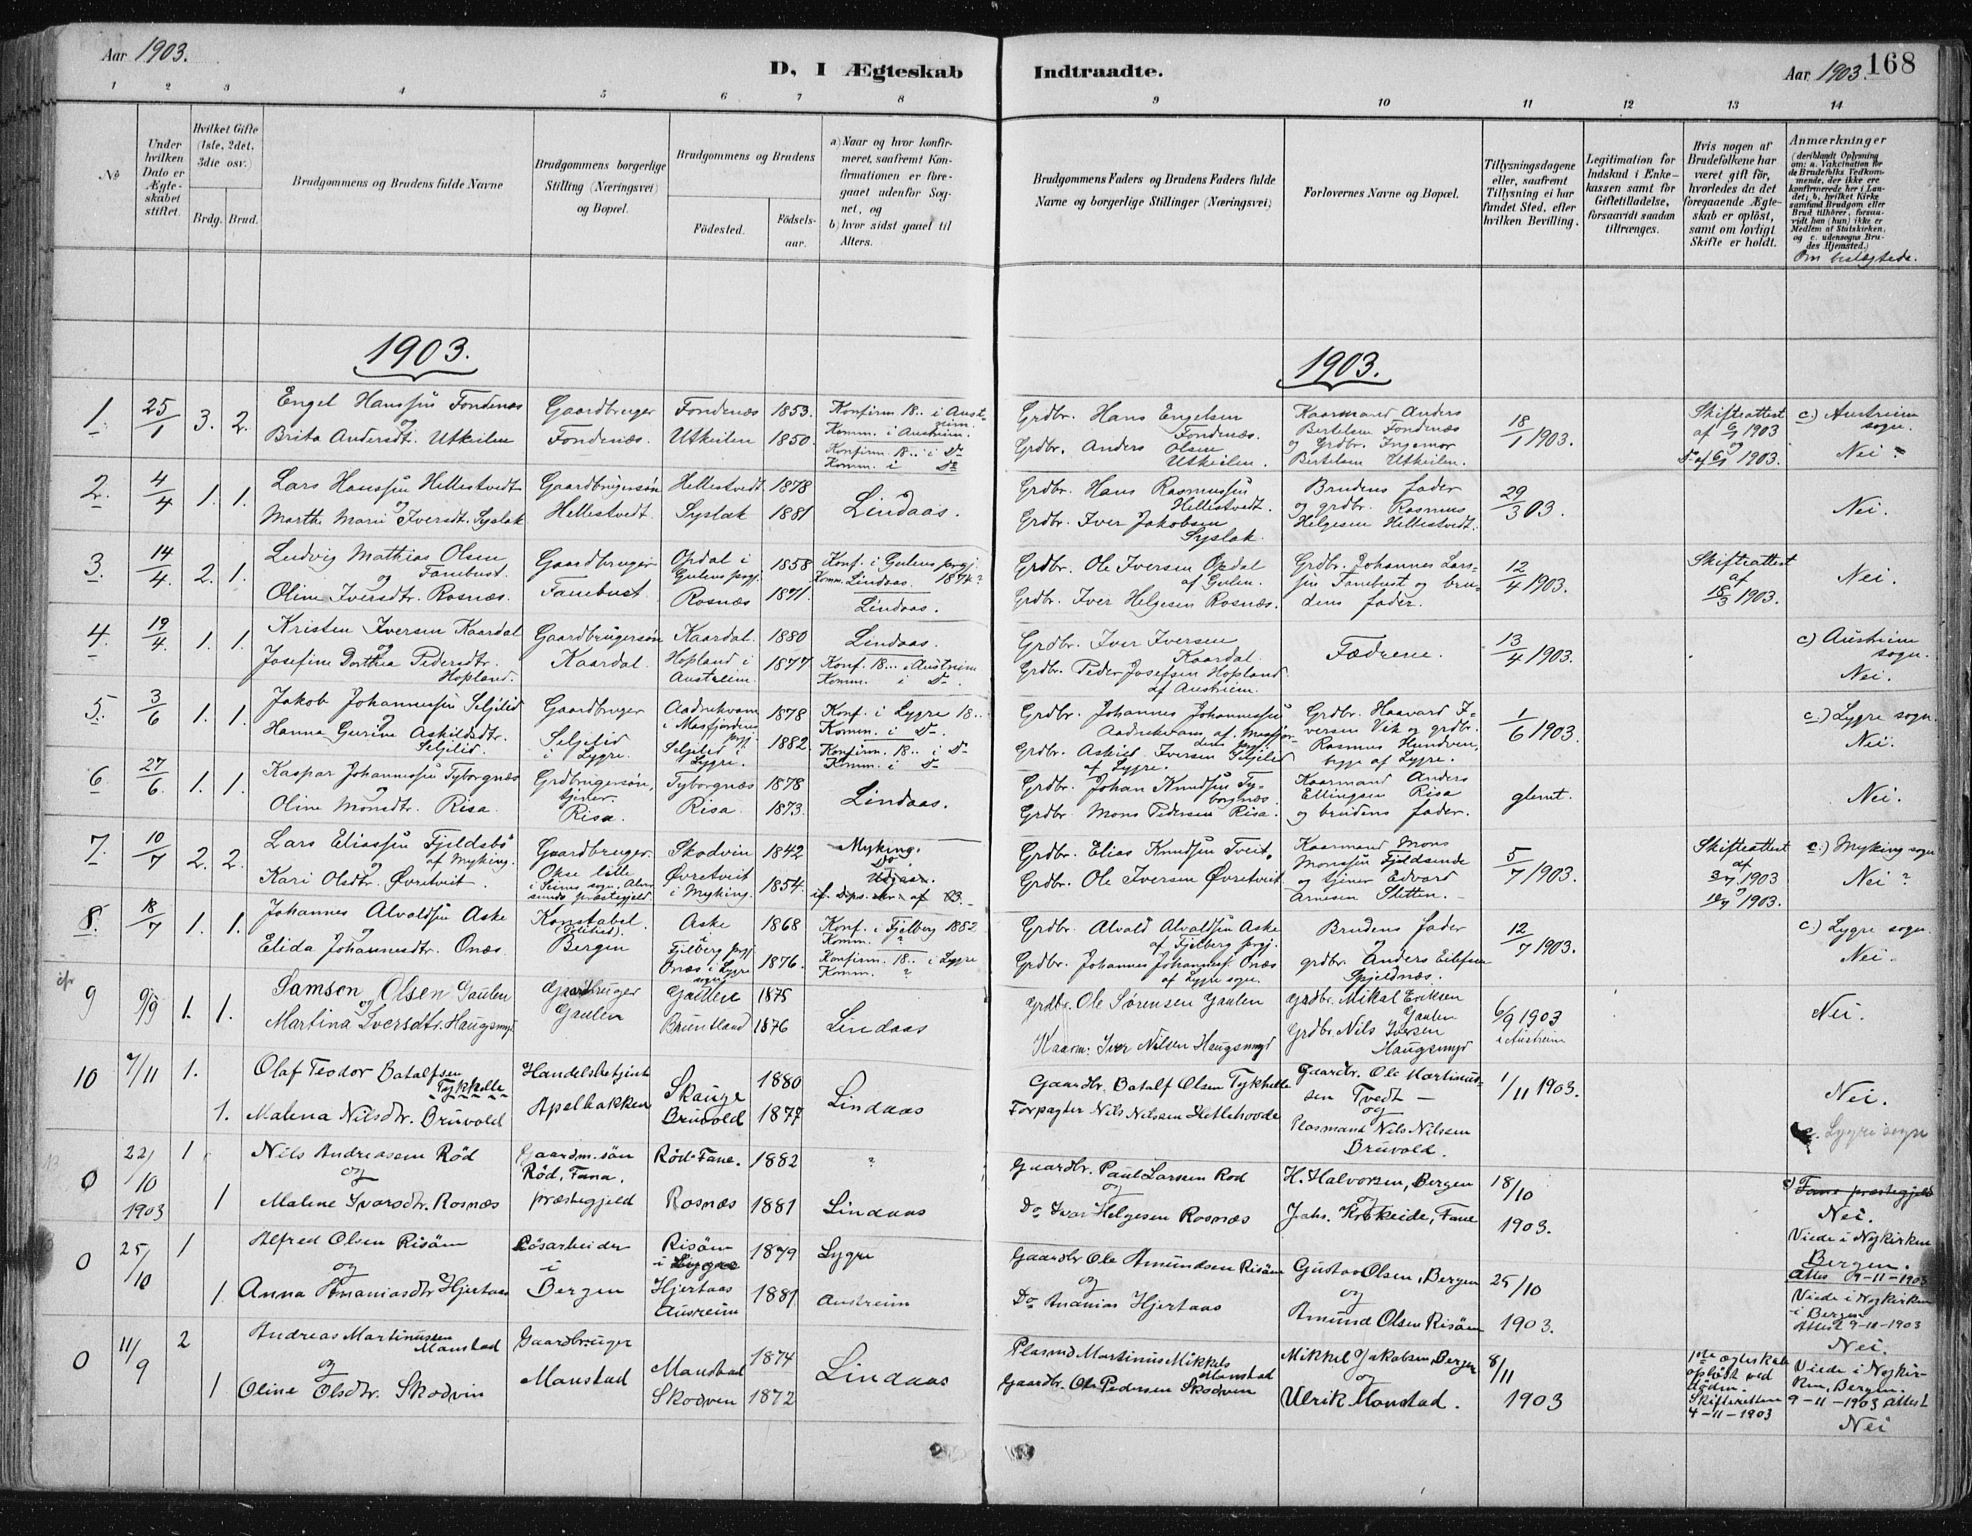 Aar 1903.
D, I Ægteskab Indtraadte.
Aar 1903. 168
1 2 3 4 5 6 7 8 9 10 11 12 13 14
No
Under hvilken Dato er Ægteskabet stiftet.
Hvilket Gifte (1ste, 2det, 3die osv.)
Brdg. Brud.
Brudgommens og Brudens fulde Navne
Brudgommens borgerlige Stilling (Næringsvei) og Bopæl.
Brudgommens og Brudens
Födested.
Födselsaar.
a) Naar og hvor konfirmeret, saafremt Konfirmationen er foregaaet udenfor Sognet, og
b) hvor sidst gaaet til Alters.
Brudgommens Faders og Brudens Faders fulde Navne og borgerlige Stillinger (Næringsvei)
Forlovernes Navne og Bopæl.
Tillysningsdagene eller, saafremt Tillysning ei har fundet Sted, efter hvilken Bevilling.
Legitimation for Indskud i Enkekassen samt for Giftetilladelse, forsaavidt saadan tiltrænges.
Hvis nogen af Brudefolkene har været gift för, hvorledes da det foregaaende Ægteskab er oplöst, samt om lovligt Skifte er holdt.
Anmærkninger
(deriblandt Oplysning om: a. Vakcination for de Brudefolks Vedkommende, der ikke ere konfirmerede her i Landet; b. hvilket Kirkesamfund Brudgom eller Brud tilhörer, forsaavidt han (hun) ikke er Medlem af Statskirken, og c. udensogns Brudes Hjemsted.)
Om beslægtede.
1903. 1903.
1. 25/1 3. 2. Engel Hanssøn Fondenæs Gaardbruger Fondenæs 1853. Konfirm 18.. i Austrheim. Komm. i Austreim. Grdbr. Hans Engelsen Fondenæs. Kaarmand Anders Bertelsen Fondenæs 18/1 1903. Skifteattest af 6/1 1903 c.) Austreim sogn.
og
Brita Andersdt. Utkeilen Fondenæs. Utkeilen 1850. Konfirm 18.. i Do Komm. i Do Grdbr. Anders Olsen Utkeilen. og Grdbr. Ingemor Bertelsen Utkeilen. og Do af 6/1 1903. Nei
2. 4/4 1. 1. Lars Hanssøn Hellestvedt Gaardbrugersøn Hellestvedt 1878 Lindaas. Grdbr. Hans Rasmussøn Hellestvedt. Brudens fader 29/3 03.
og
Marthe Marie Iversdt. Syslak Hellestvedt. Syslak 1881 Grdbr. Iver Jakobsen Syslak. og grdbr. Rasmus Helgesen Hellestvedt. Nei.
3. 14/4. 2. 1. Ludvig Mathias Olsen Fanebust. Gaardbruger Opdal i Gulens prgj. 1858 Konf. i Gulens prgj. 1874? Komm. Lindaas. Grdbr. Ole Iversen Opdal af Gulen. Grdbr. Johannes Larssøn Fanebust og bru- 12/4 1903. Skifteattest af 18/3 1903. Nei.
og
Oline Iversdtr. Rosnæs. Fanebust. Rosnæs 1871. Lindaas. Grdbr. Iver Helgesen Rosnæs. dens fader.
4. 19/4. 1. 1. Kristen Iversen Kaardal Gaardbrugersøn Kaardal. 1880 Lindaas. Grdbr. Iver Iversen Kaardal. Fædrene. 13/4 1903. c) Austreim sogn.
og
Josefine Dorthea Pedersdtr. Hopland. Kaardal. Hopland i Austreim. 1877 Konf. 18.. i Austreim Komm. i Do. Grdbr. Peder Josefsen Hopland af Austreim. Nei.
5. 3/6 1. 1. Jakob Johannessøn Seljelid Gaardbruger Aadnekvam i Masfjordens prgj. 1878 Konf. i Lygre 18.. Komm. i Do. Grdbr. Johannes Johannessøn Aadnekvam af Masfjordens prgj. Grdbr. Haavard Iversen Vik og grdbr. 1/6 1903. c.) Lygre sogn.
og
Hanna Gurine Askildsdtr. Seljelid Seljelid i Lygre. Seljelid i Lygre. 1882. Konfirm. 18.. i Do Komm. i Do Grdbr. Askild Iversen Seljelid af Lygre. Rasmus Hundven, begge af Lygre. Nei.
6 27/6. 1. 1. Kaspar Johannessøn Tyborgnæs Grdbrugersøn, tjener. Tyborgnæs 1878 Lindaas. Grdbr. Johan Knudsøn Tyborgnæs Kaarmand Anders Ellingsen Risa glemt. Nei.
Oline Monsdt. Risa. Risa. Risa. 1873. Grdbr. Mons Pedersen Risa. og brudens fader.
7. 10/7 2. 2. Lars Eliassøn Fjeldsbø af Myking. Gaardbruger. Skodvin 1842 Myking. Do Grdbr. Elias Knudsøn Tveit. Kaarmand Mons Monssøn Fjeldsende 5/7 1903. Skifteattest af 3/7 1903 c.) Myking sogn
og
Kari Olsdtr. Øvretveit. Okse lille i Seims sogn, Alversunds præstegjeld Øvretveit i Myking. 1854. Grdbr. Ole Iversen Øvretveit og tjener Edvard Arnesen Sletten. 1903. Nei?
8. 18/7 1. 1. Johannes Alvaldsøn Aske Konstabel. (Politied). Aske 1868 Konf. i Fjelberg 1882. Komm. ? Grdbr. Alvald Alvaldsøn Aske af Fjelberg prgj. Brudens fader 12/7 1903. c.) Lygre sogn.
og
Elida Johannesdtr. Onæs. Bergen Fjelberg prgj. Onæs i Lygre sogn 1876. Konfirm. 18.. i Lygre Komm. ? Grdbr. Johannes Johannesf. Onæs af Lygre sogn. og grdbr. Anders Eilefsen Spjeldnæs. Nei.
9 9/9 1. 1. Samson Olsen Gaulen Gaardbruger Gaulen 1875 Lindaas Grdbr. Ole Sørensen Gaulen Grdbr. Mikal Eriksen Gaulen 6/9 1903 i Austreim Nei.
og
Martina Iversdtr. Haugsmyr Gaulen Bruntland 1876 Kaarm. Iver Nilsen Haugsmyr Grdbr. Nils Iversen Haugsmyr
10 7/11 1. Olaf Teodor Batalfsen Tykkelle Handelsbetjent Skauge 1880 Lindaas Gaardbr. Batalf Olsen Tykhelle Gaardbr. Ole Martinussen Tvedt 1/11 1903. Nei.
1. Malena Nilsdtr. Bruvold Apelbakken Bruvold 1877 Forpagter Nils Nilssen Hettehovde og Plasmand Nils Nilssen Bruvold. c. Lygre sogn
0 22/10 1903 1 Nils Andreassen Rød Gaardm. søn Rød, Fana. Rød Fane. 1882 ? Gaardbr. Paul Larssen Rød H. Halvorsen, Bergen 18/10 c) Fana præstegjeld
og
1 Malene Ivarsdtr. Rosnæs præstegjeld Rosnæs 1881 Lindaas og Do Ivar Helgesen Rosnæs og Johs. Krokeide, Fane 1903. Nei. Viede i Nykirken Bergen. Attes 9-11-1903
0 25/10 1 Alfred Olsen Risøm Løsarbeider Risøm i Lygre 1879 Lygre Gaardbr Ole Amundsen Risøm Gustav Olsen, Bergen 25/10 Viede i Nykirken i Bergen Attest 9-11-1903
og
1. Anna Ananiasdtr Hjertaas i Bergen Hjertaas Ausreim 1881 Austreim og Do Ananias Hjertaas og Amund Olsen Risøm 1903. Nei.
0 11/9 2 Andreas Martinussen Monstad Gaardbruger Monstad 1874 Lindaas Plasmd Martinus Mikkels Monstad Mikkel Jakobsen, Bergen 8/11 1ste ægteskab opløst ved døden. Viede i Nykirken, Bergen.
og
1 Oline Olsdtr. Skodvin Monstad Skodven 1872 Gaardbr. Ole Pedersen Skodven og Ulrik Monstad. 1903 Skifteretten 4-11-1903 9-11-1903 Attest Nei